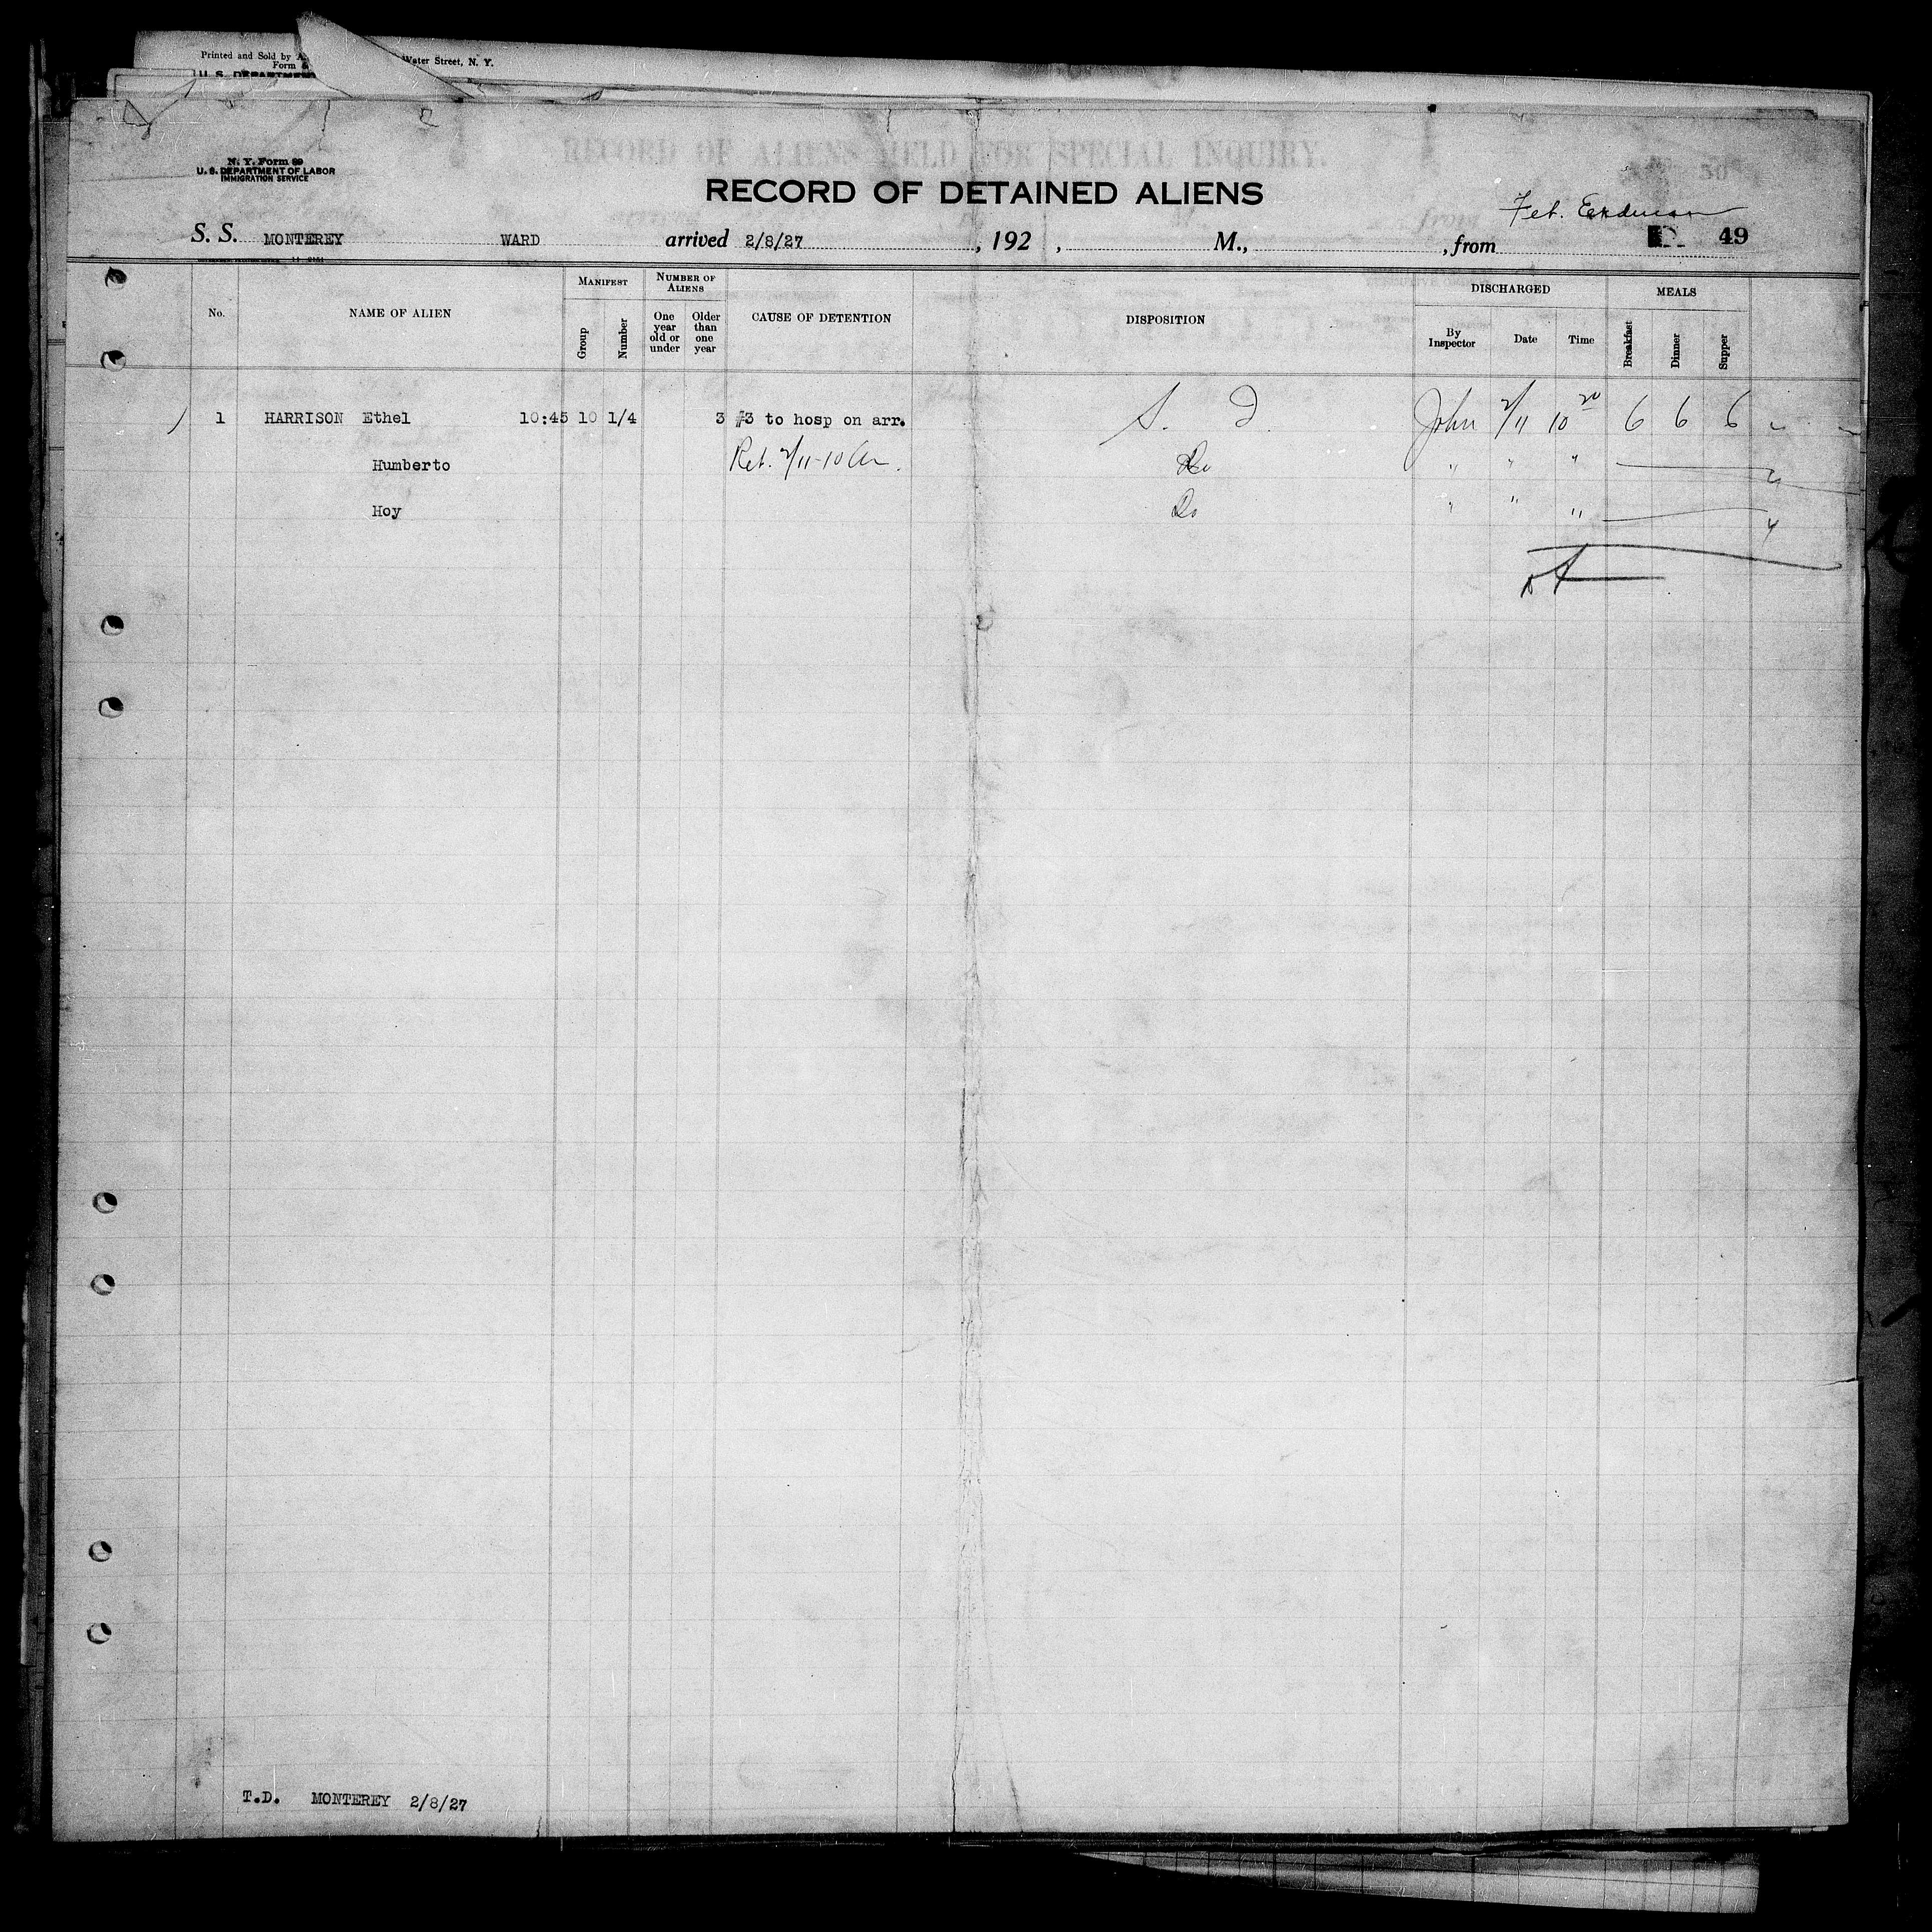 Printed and Sold by A. Water Street, N. Y.
Form
U. S. DEPARTMENT
RECORD OF ALIENS HELD FOR SPECIAL INQUIRY.
N. Y. Form 69
U. S. DEPARTMENT OF LABOR
IMMIGRATION SERVICE
50
RECORD OF DETAINED ALIENS
S. S. MONTEREY WARD arrived 2/8/27, 192 , M., , from 49
No. NAME OF ALIEN MANIFEST Group Number NUMBER OF ALIENS One year old or under Older than one year CAUSE OF DETENTION DISPOSITION DISCHARGED By Inspector Date Time MEALS Breakfast Dinner Supper
1 HARRISON Ethel 10:45 10 1/4 3 #3 to hosp on arr. S. D. John 2/11 10 20 6 6 6
Humberto Ret. 2/11-10 Am. Do " " "
Hoy Do " " "
T.D. MONTEREY 2/8/27